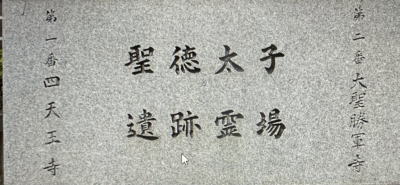 聖徳太子
遺跡霊場
第一番四天王寺
第二番大聖勝軍寺